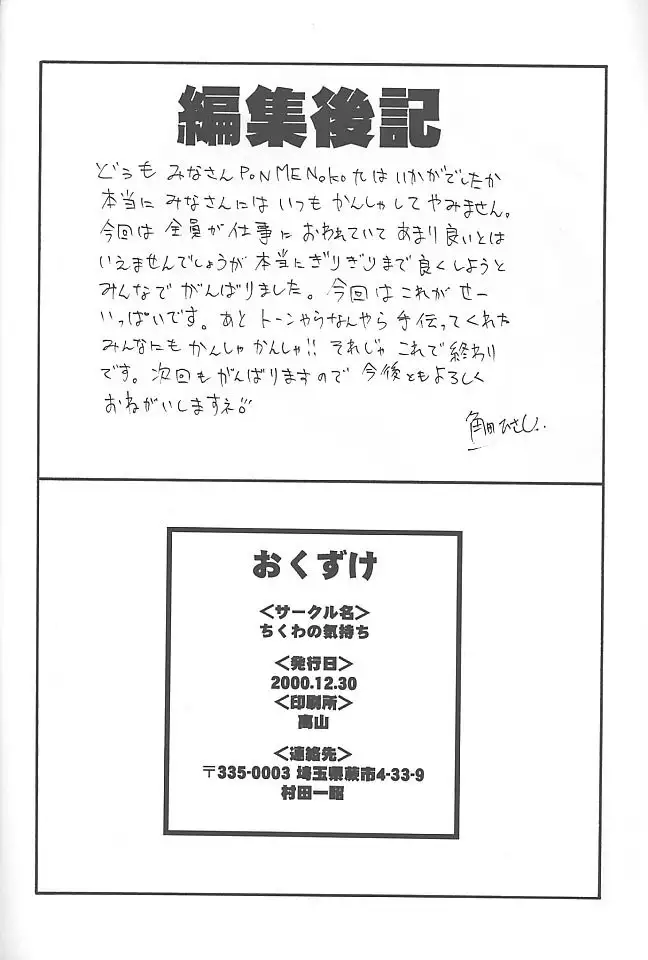 編集後記
どうも みなさん PON MENOKO 九は いかがでしたか
本当に みなさんには いつも かんしゃして やみません。
今回は 全員が 仕事に おわれていて あまり 良いとは
いえませんでしょうが 本当に ぎりぎりまで 良くしようと
みんなで がんばりました。 今回は これが せー
いっぱいです。 あと トーンやらなんやら 手伝ってくれた
みんなにも かんしゃ かんしゃ!! それじゃ これで 終わり
です。 次回も がんばりますので 今後ともよろしく
おねがいしますネ
角田ひさし..
おくずけ
<サークル名>
ちくわの気持ち
<発行日>
2000.12.30
<印刷所>
高山
<連絡先>
〒335-0003 埼玉県蕨市4-33-9
村田一昭